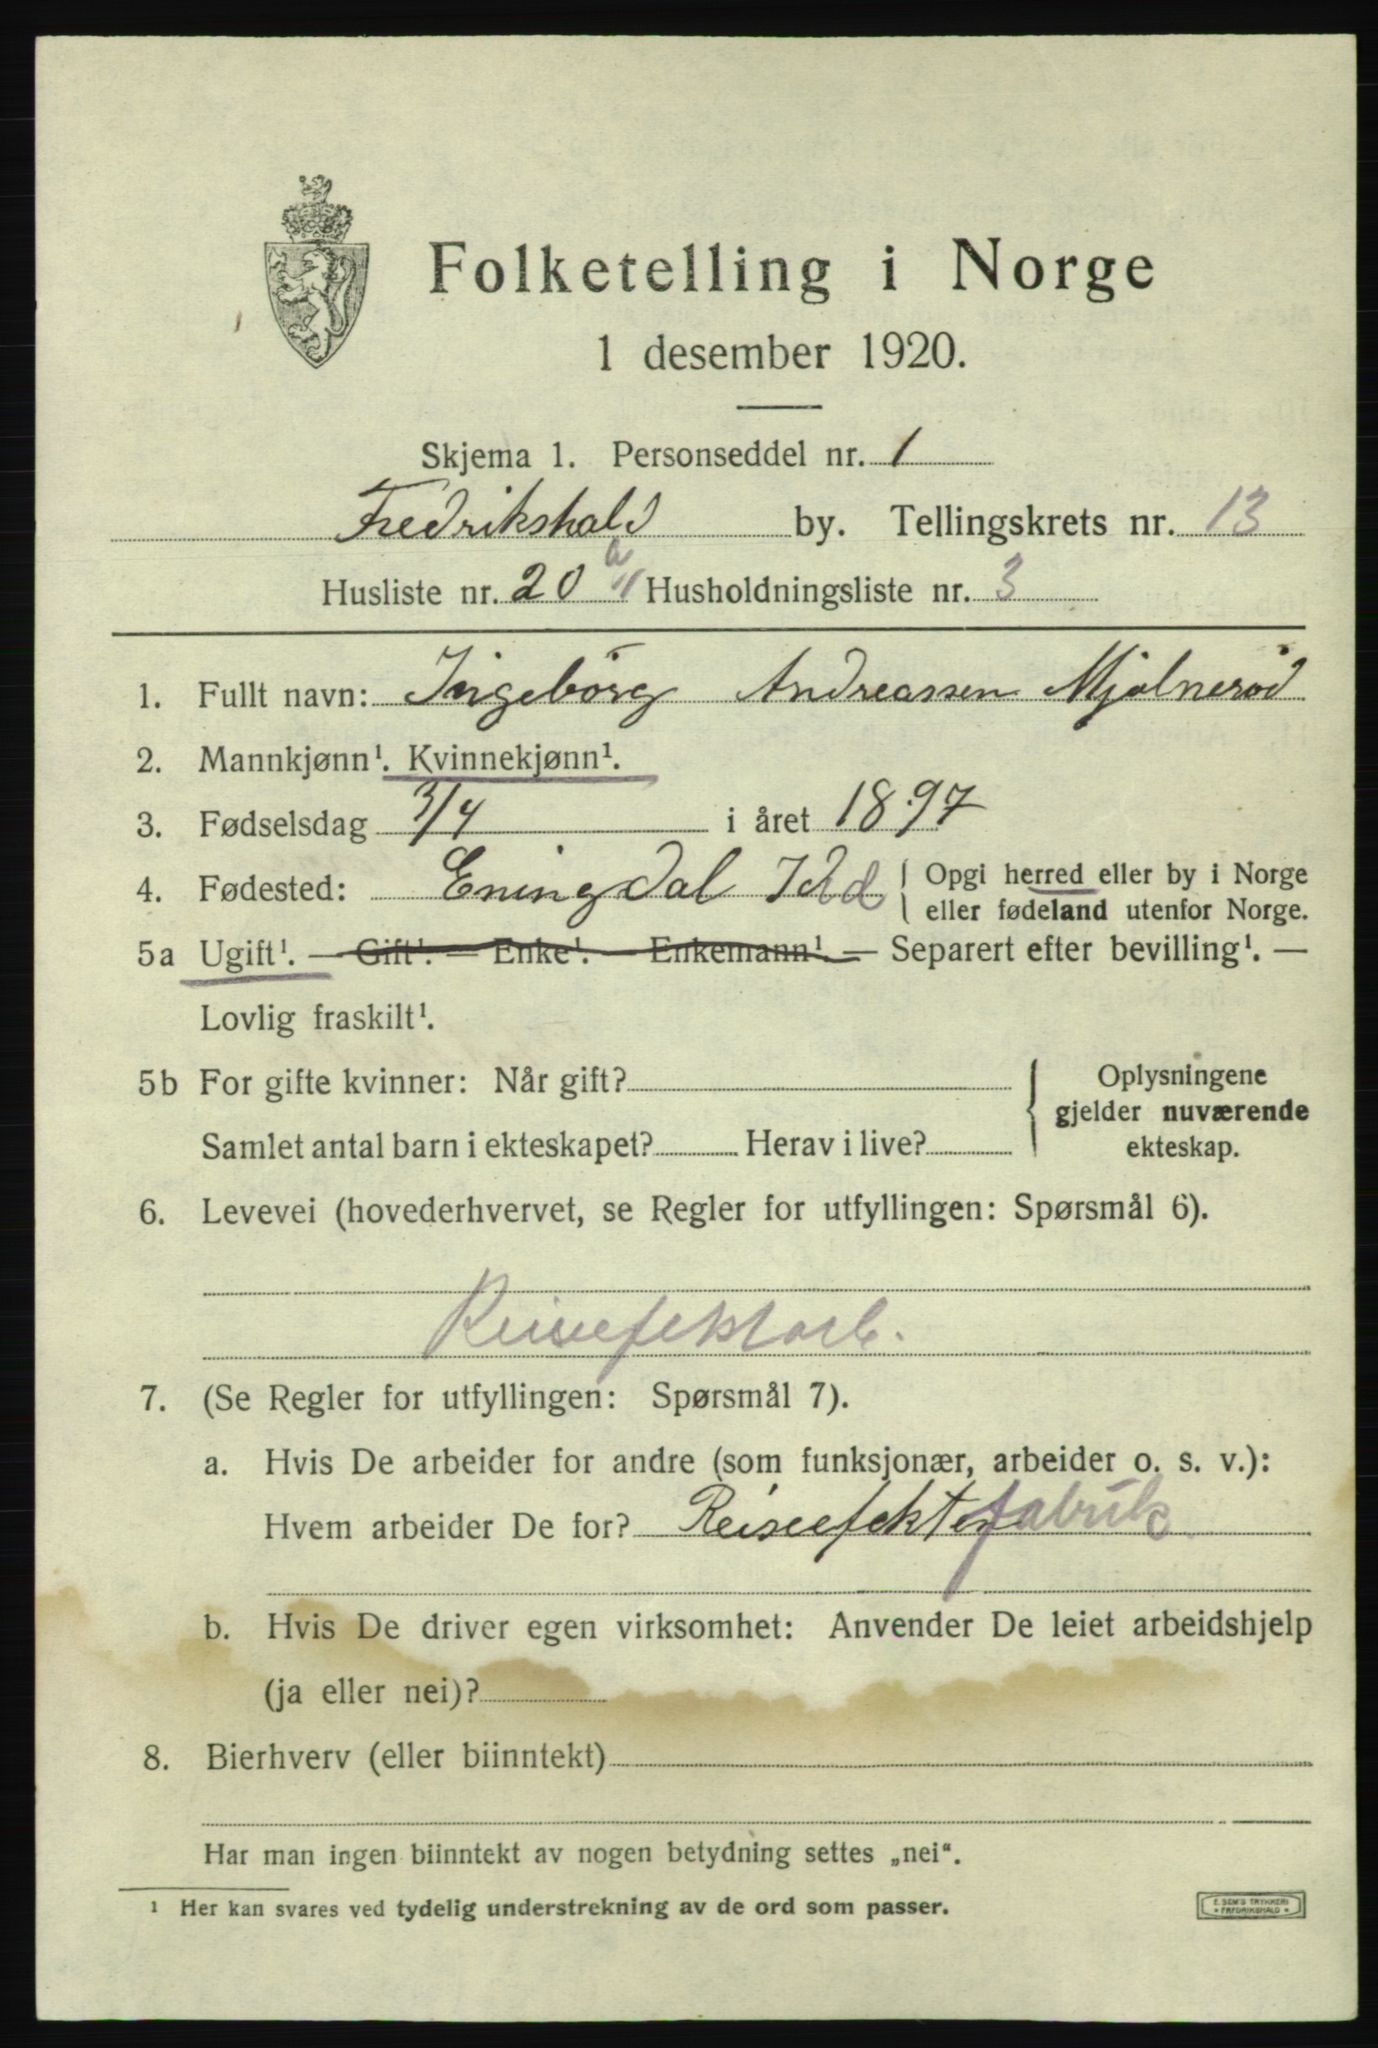 Folketelling i Norge
1 desember 1920.
Skjema 1. Personseddel nr. 1
Fredrikshald by. Tellingskrets nr. 13
Husliste nr. 20 a Husholdningsliste nr. 3
1. Fullt navn: Ingebörg Andreassen Mjølnerød
2. Mannkjønn¹. Kvinnekjønn¹.
3. Fødselsdag 3/4 i året 1897
4. Fødested: Eningdal Idd Opgi herred eller by i Norge
eller fødeland utenfor Norge.
5a Ugift¹. — Gift¹. — Enke¹. — Enkemann¹. — Separert efter bevilling¹. —
Lovlig fraskilt¹.
5b For gifte kvinner: Når gift? Oplysningene
gjelder nuværende
Samlet antal barn i ekteskapet? Herav i live? ekteskap.
6. Levevei (hovederhvervet, se Regler for utfyllingen: Spørsmål 6).
Reiseefektarb.
7. (Se Regler for utfyllingen: Spørsmål 7).
a. Hvis De arbeider for andre (som funksjonær, arbeider o. s. v.):
Hvem arbeider De for? Reiseefektenfabrik.
b. Hvis De driver egen virksomhet: Anvender De leiet arbeidshjelp
(ja eller nei)?
8. Bierhverv (eller biinntekt)
Har man ingen biinntekt av nogen betydning settes „nei“.
¹ Her kan svares ved tydelig understrekning av de ord som passer.
E. SEM'S TRYKKERI
• FREDRIKSHALD •